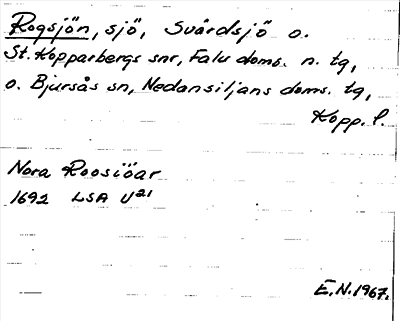 Rogsjön, sjö, Svärdsjö o.
St. Kopparbergs snr, Falu doms. n. tg,
o. Bjursås sn, Nedansiljans doms. tg,
Kopp. l.
Nora Roosiöar
1692 LSA U²¹
E.N.1967.